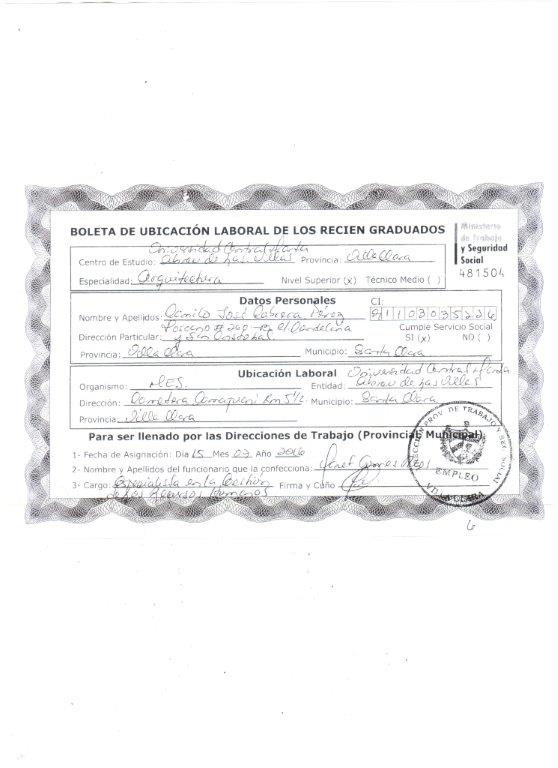 BOLETA DE UBICACIÓN LABORAL DE LOS RECIEN GRADUADOS
Ministerio
de Trabajo
y Seguridad
Social
481504
Universidad Central Marta
Centro de Estudio: Abreu de Las Villas Provincia: Villa Clara
Especialidad: Arquitectura Nivel Superior (x) Técnico Medio ( )
Datos Personales
CI:
Nombre y Apellidos: Camilo José Cabrera Pérez 91103035226
Toscano # 260 e/ Candelaria
Dirección Particular: y San Cristobal Cumple Servicio Social
SI (x) NO ( )
Provincia: Villa Clara Municipio: Santa Clara
Ubicación Laboral Universidad Central Marta
Organismo: MES. Entidad: Abreu de Las Villas
Dirección: Carretera Camajuani Km 5 1/2 Municipio: Santa Clara
Provincia: Villa Clara
Para ser llenado por las Direcciones de Trabajo (Provincial, Municipal)
1- Fecha de Asignación: Dia 15 Mes 07 Año 2016
2- Nombre y Apellidos del funcionario que la confecciona:
3- Cargo: Especialista en la Gestión Firma y Cuño
de los Recursos Humanos
DIRECCION PROV. DE TRABAJO Y SEG. SOCIAL
EMPLEO
VILLA CLARA